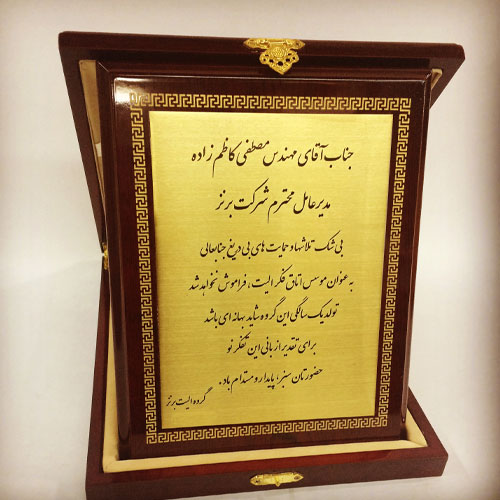 جناب آقای مهندس مصطفی کاظم زاده
مدیرعامل محترم شرکت برنز
بی شک تلاشها و حمایت های بی دریغ جنابعالی
به عنوان موسس اتاق فکر الیت، فراموش نخواهد شد
تولد یک سالگی این گروه شاید بهانه ای باشد
برای تقدیر از بانی این تفکر نو
حضورتان سبز، پایدار و مستدام باد.
گروه الیت برنز